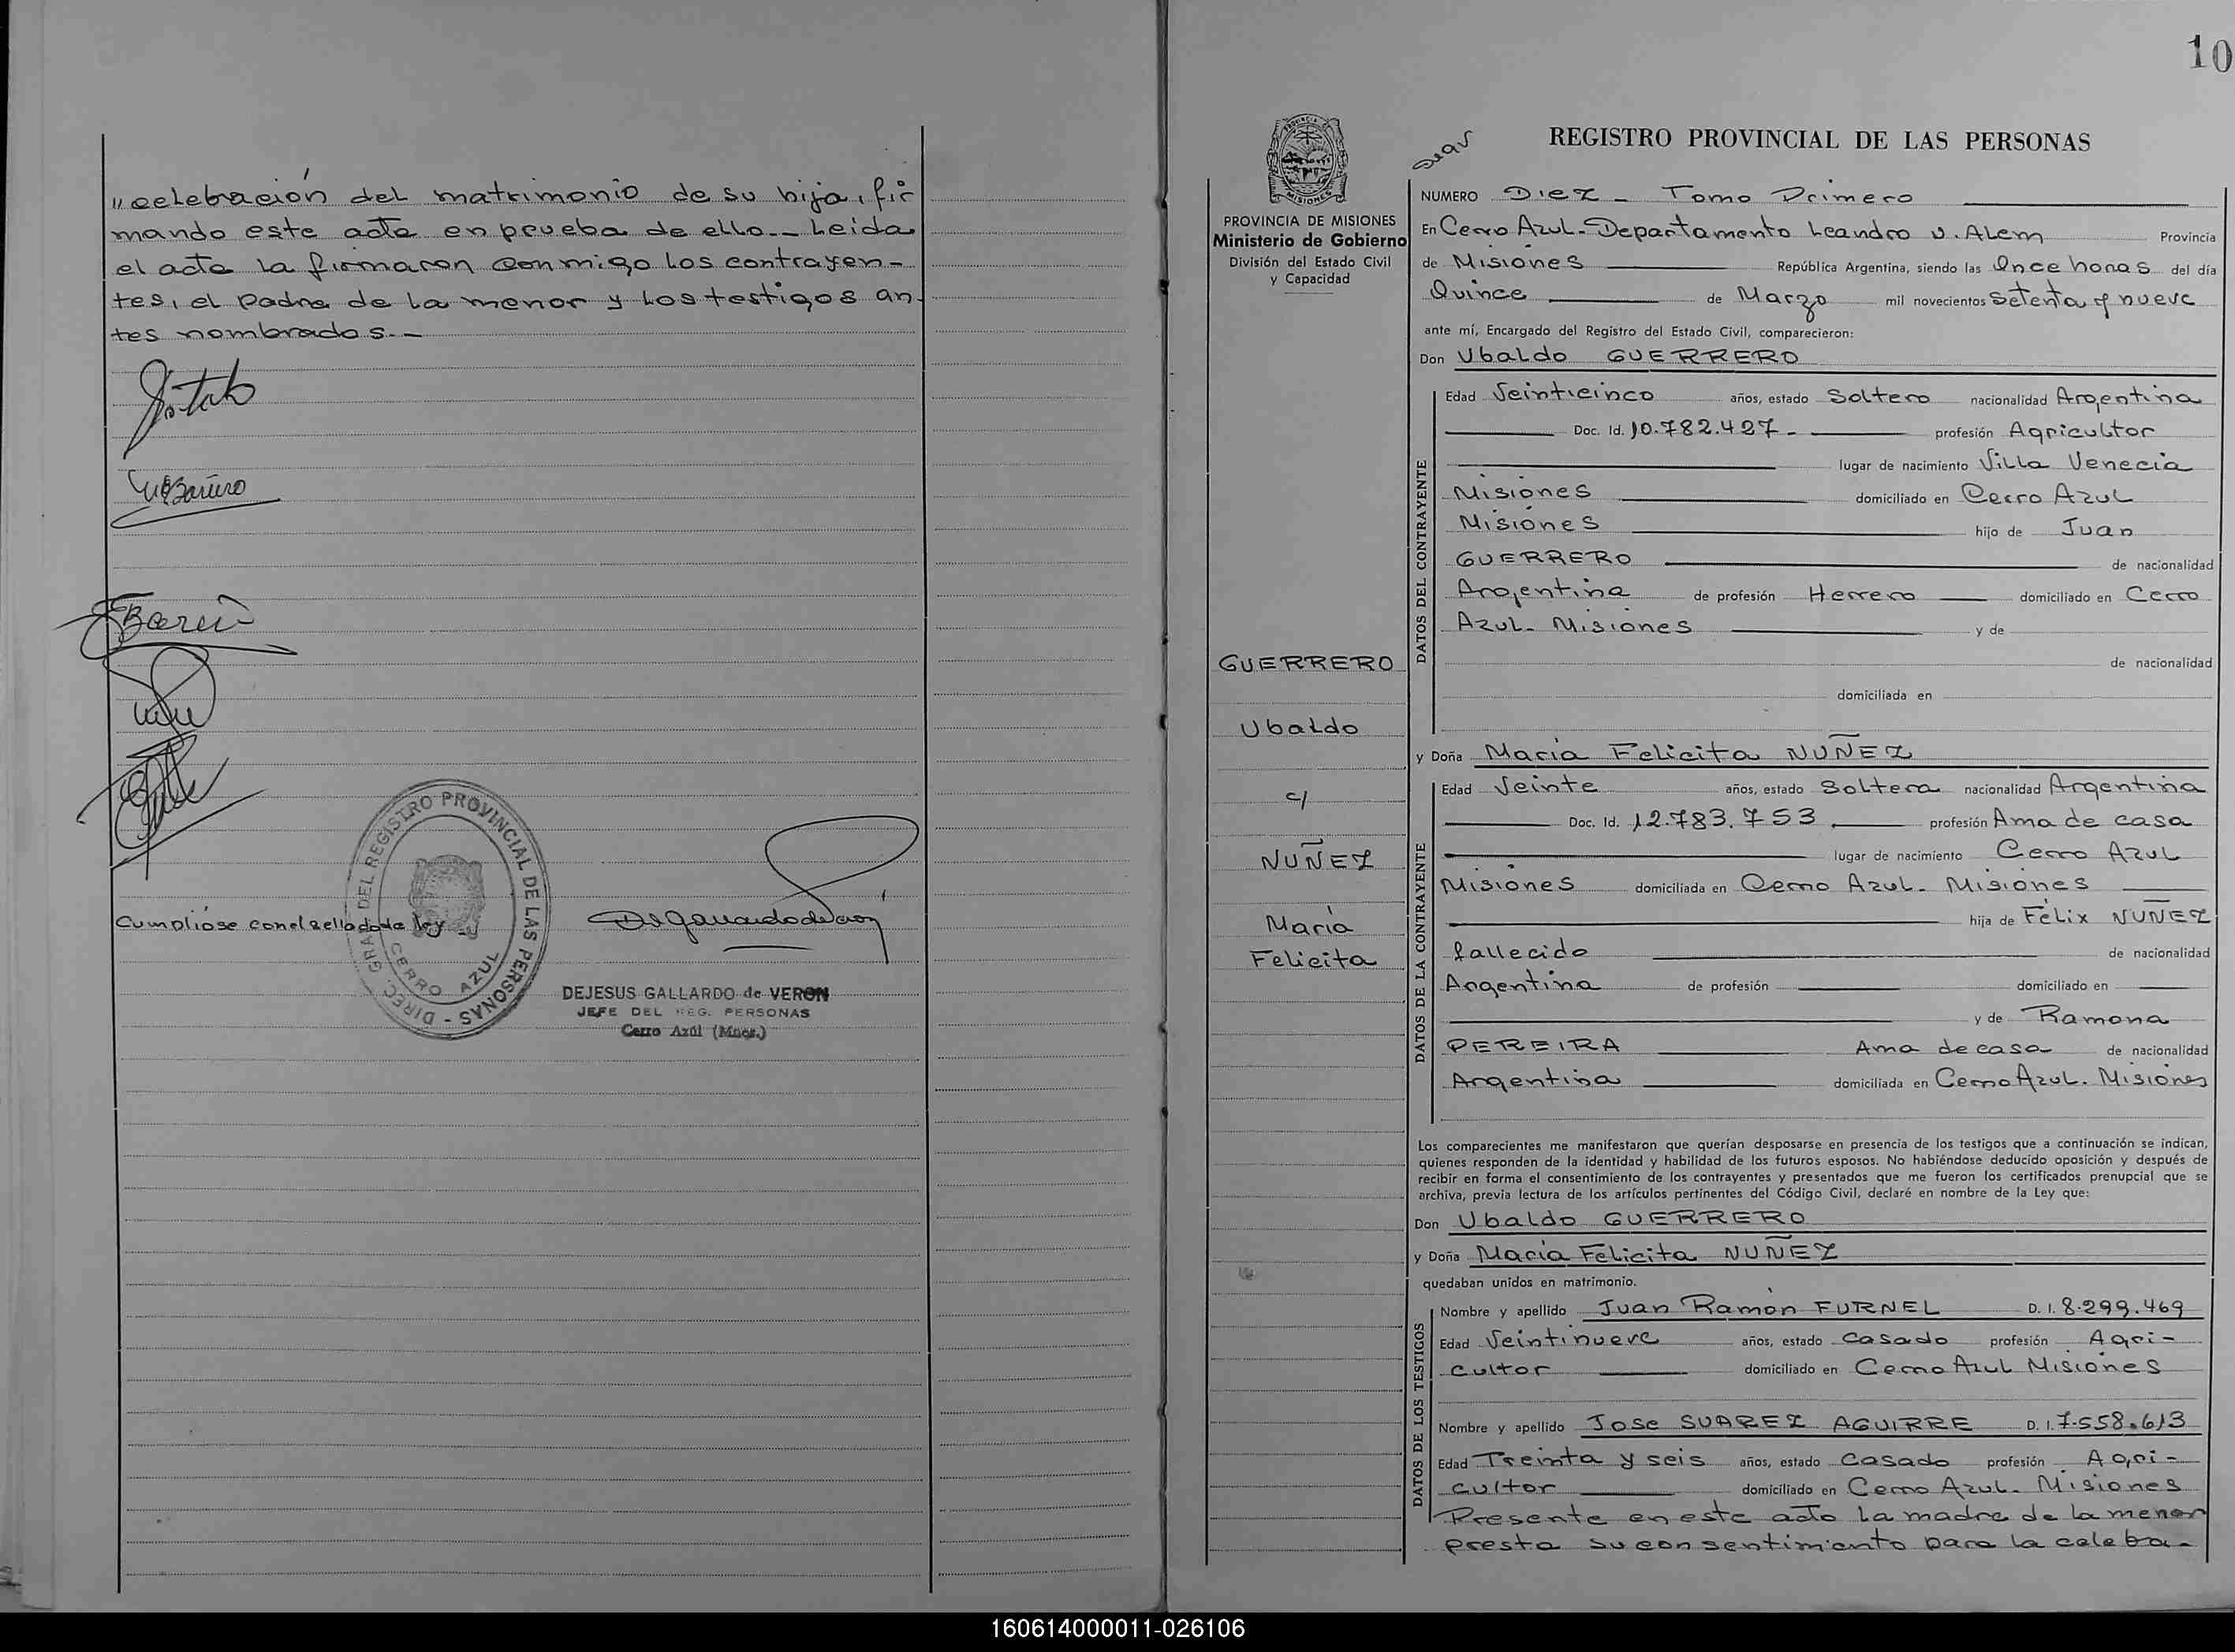 " celebración del matrimonio de su hija, fir
mando este acta en prueba de ello.- Leida
el acta la firmaron conmigo los contrayen-
tes, el padre de la menor y los testigos an-
tes nombrados.-
Cumplióse con el sellado de ley.-
DIREC. GRAL. DEL REGISTRO PROVINCIAL DE LAS PERSONAS -
CERRO AZUL
DEJESUS GALLARDO de VERON
JEFE DEL REG. PERSONAS
Cerro Azúl (Mnes.)
10
PROVINCIA DE MISIONES
Ministerio de Gobierno
División del Estado Civil
y Capacidad
GUERRERO
Ubaldo
c/
NUÑEZ
María
Felicita
REGISTRO PROVINCIAL DE LAS PERSONAS
NUMERO Diez - Tomo Primero
En Cerro Azul-Departamento Leandro N. Alem Provincia
de Misiones República Argentina, siendo las Once horas del día
Quince de Marzo mil novecientos setenta y nueve
ante mí, Encargado del Registro del Estado Civil, comparecieron:
Don Ubaldo GUERRERO
DATOS DEL CONTRAYENTE
Edad Veinticinco años, estado Soltero nacionalidad Argentina
Doc. Id. 10.782.427.- profesión Agricultor
lugar de nacimiento Villa Venecia
Misiones domiciliado en Cerro Azul
Misiones hijo de Juan
GUERRERO de nacionalidad
Argentina de profesión Herrero domiciliado en Cerro
Azul- Misiones y de
de nacionalidad
domiciliada en
y Doña María Felicita NUÑEZ
DATOS DE LA CONTRAYENTE
Edad Veinte años, estado Soltera nacionalidad Argentina
Doc. Id. 12.783.753 profesión Ama de casa
lugar de nacimiento Cerro Azul
Misiones domiciliada en Cerro Azul- Misiones
hija de Félix NUÑEZ
fallecido de nacionalidad
Argentina de profesión domiciliado en
y de Ramona
PEREIRA Ama de casa de nacionalidad
Argentina domiciliada en Cerro Azul. Misiones
Los comparecientes me manifestaron que querían desposarse en presencia de los testigos que a continuación se indican,
quienes responden de la identidad y habilidad de los futuros esposos. No habiéndose deducido oposición y después de
recibir en forma el consentimiento de los contrayentes y presentados que me fueron los certificados prenupcial que se
archiva, previa lectura de los artículos pertinentes del Código Civil, declaré en nombre de la Ley que:
Don Ubaldo GUERRERO
y Doña María Felicita NUÑEZ
quedaban unidos en matrimonio.
DATOS DE LOS TESTIGOS
Nombre y apellido Juan Ramón FURNEL D. I. 8.299.469
Edad Veintinueve años, estado casado profesión Agri-
cultor domiciliado en Cerro Azul Misiones
Nombre y apellido Jose SUAREZ AGUIRRE D. I. 7.558.613
Edad Treinta y seis años, estado casado profesión Agri-
cultor domiciliado en Cerro Azul- Misiones
Presente en este acto la madre de la menor
presta su consentimiento para la celebra-
160614000011-026106